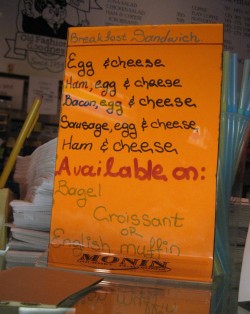 Old Fashion
Breakfast Sandwich
Egg & cheese
Ham, egg & cheese
Bacon, egg & cheese
Sausage, egg & cheese
Ham & cheese
Available on:
Bagel
Croissant
OR
English muffin
MONIN